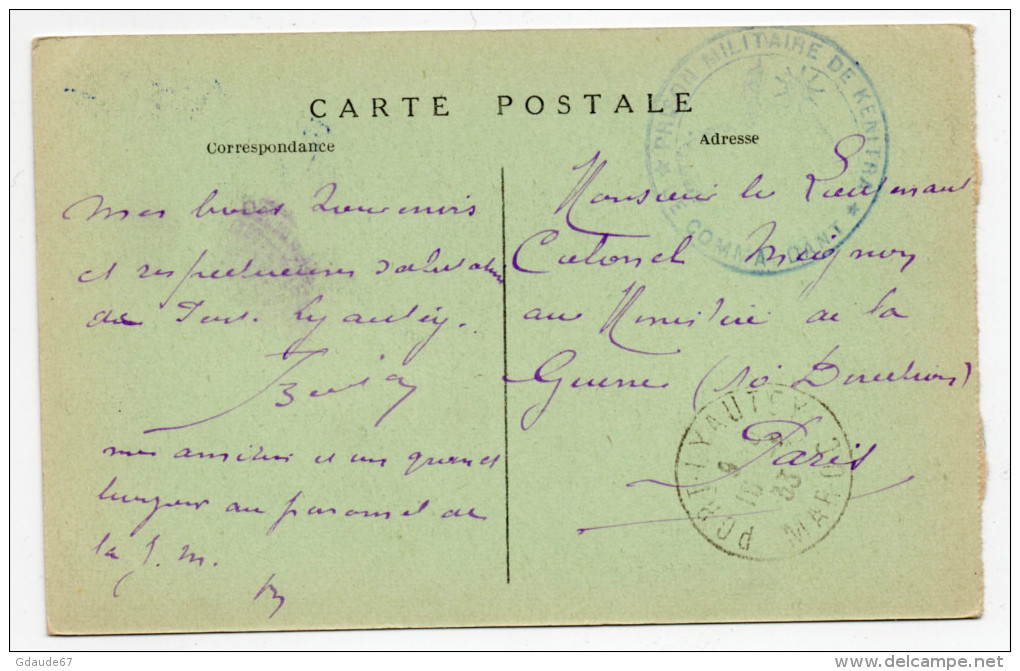 CARTE POSTALE
Correspondance
Adresse
PRISON MILITAIRE DE KENITRA
COMMANDANT
Mes bons souvenirs
et respectueuses salutations
de Port-Lyautey.
mes amitiés et un grand
bonjour au personnel de
la J. M.
Monsieur le Lieutenant
Colonel Magnon
au Ministère de la
Guerre (10e Direction)
Paris
PORT-LYAUTEY
9
16
33
MAROC
Gdaude67
delcampe.net